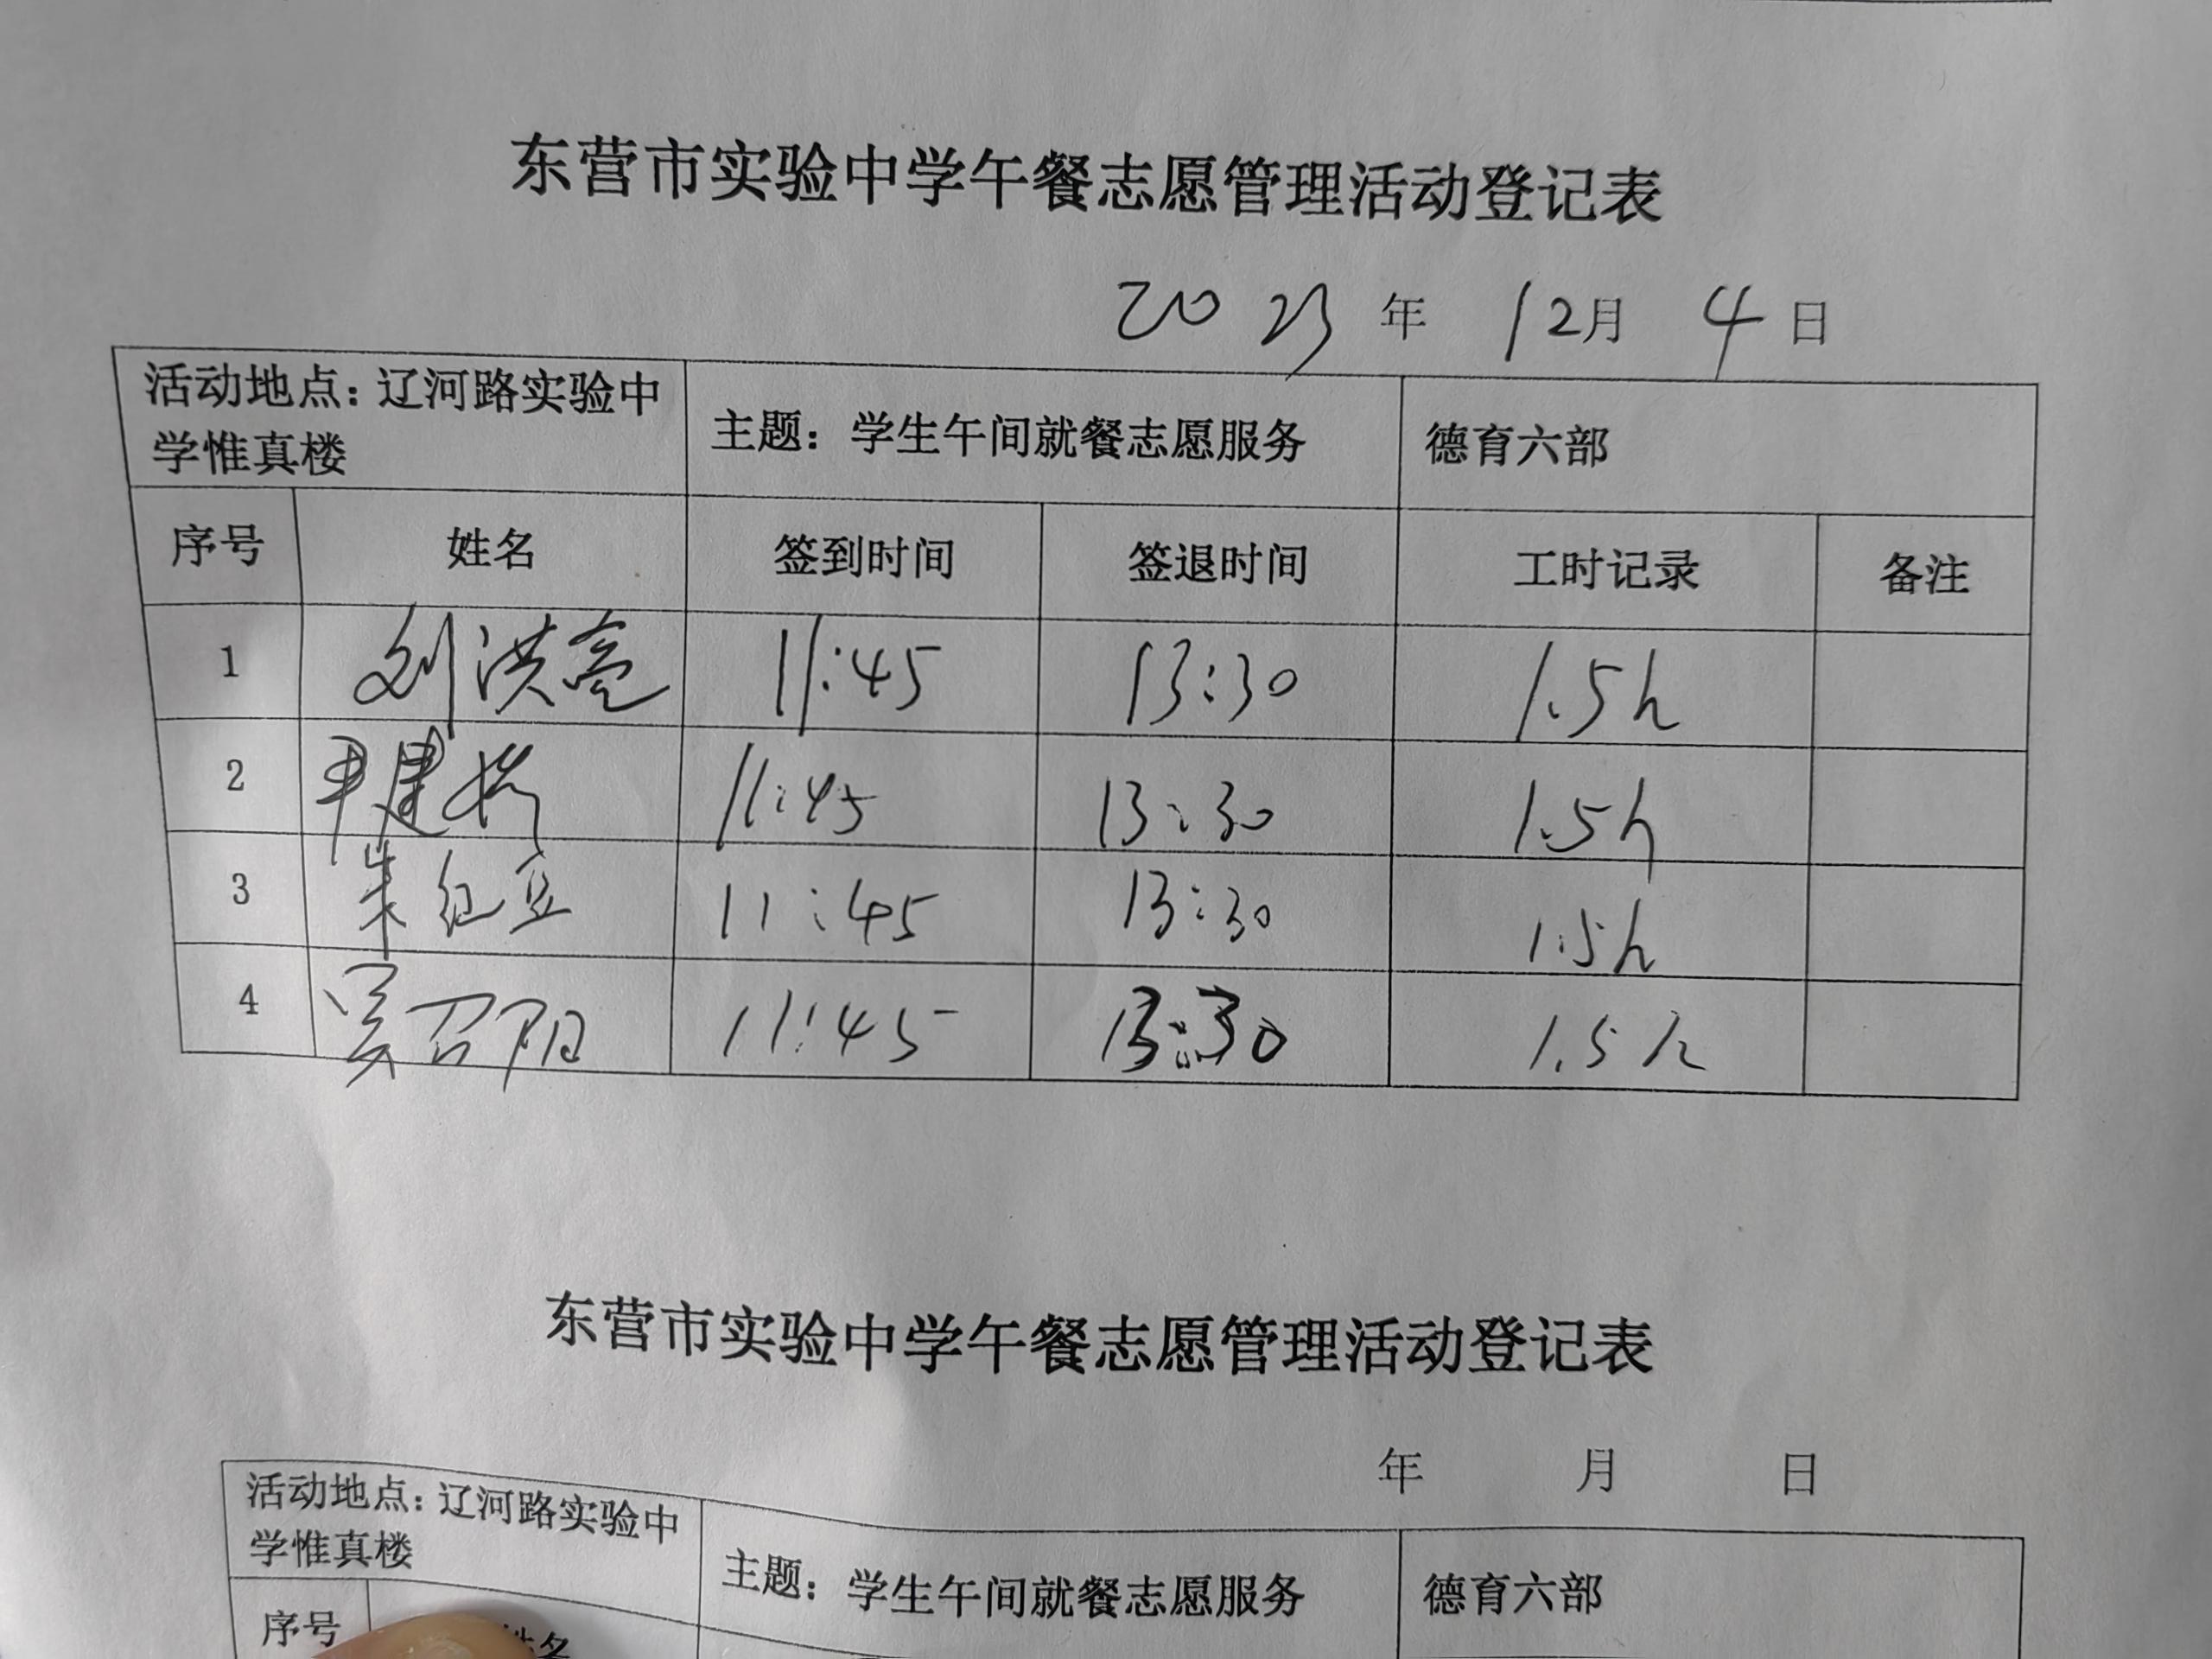 东营市实验中学午餐志愿管理活动登记表
2023年 12月 4日
活动地点：辽河路实验中
学惟真楼
主题：学生午间就餐志愿服务
德育六部
序号 姓名 签到时间 签退时间 工时记录 备注
1 刘洪亮 11:45 13:30 1.5h
2 建 11:45 13:30 1.5h
3 朱红豆 11:45 13:30 1.5h
4 吴召阳 11:45 13:30 1.5h
东营市实验中学午餐志愿管理活动登记表
年 月 日
活动地点：辽河路实验中
学惟真楼
主题：学生午间就餐志愿服务
德育六部
序号 姓名